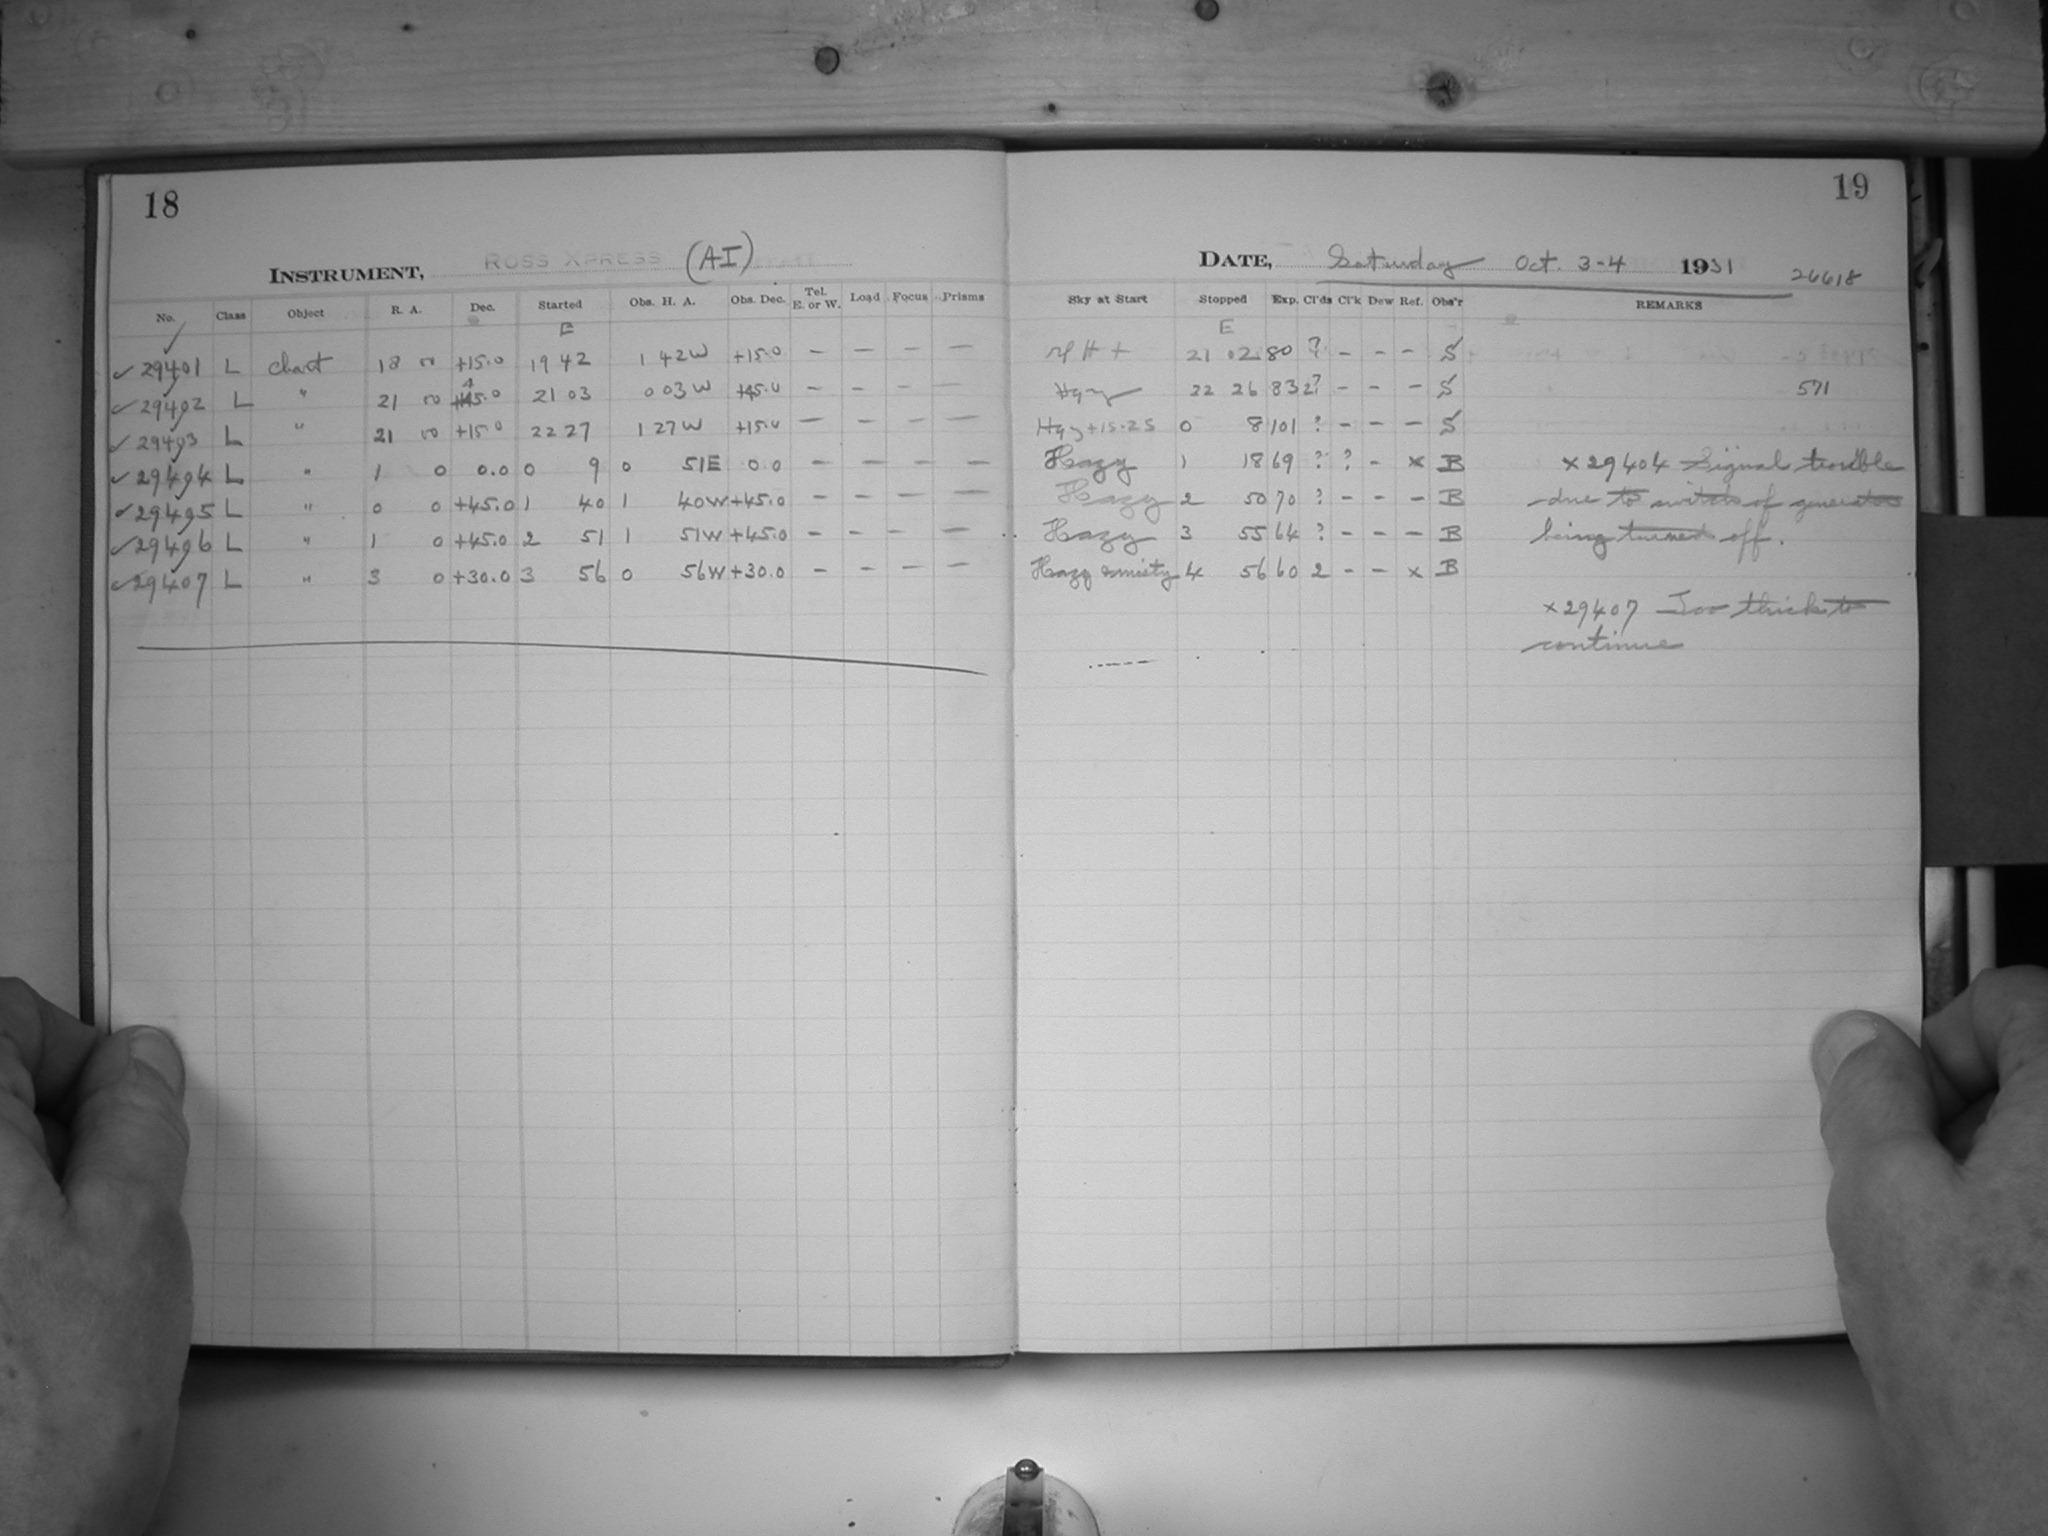 18
19
INSTRUMENT, ROSS XPRESS (AI)
DATE, Saturday Oct. 3-4 1931 26618
No. Class Object R. A. Dec. Started Obs. H. A. Obs. Dec. Tel. E. or W. Load Focus Prisms Sky at Start Stopped Exp. Cl'ds Cl'k Dew Ref. Obs'r REMARKS
E E
✓ 29401 L chart 18 00 +15.0 19 42 1 42W +15.0 — — — — H + 21 02 80 ? - - - S
✓ 29402 L " 21 00 +45.0 21 03 0 03 W +45.0 — — — — Hazy 22 26 83 2? - - - S 571
✓ 29403 L " 21 00 +15.0 22 27 1 27W +15.0 — — — — 0 8 101 ? - - - S
✓ 29404 L " 1 0 0.0 0 9 0 51E 0.0 — — — — Hazy 1 18 69 ? ? - x B x 29404 Signal trouble
✓ 29405 L " 0 0 +45.0 1 40 1 40W +45.0 — — — — Hazy 2 50 70 ? - - - B due to switch of generator
✓ 29406 L " 1 0 +45.0 2 51 1 51W +45.0 — — — — Hazy 3 55 64 ? - - - B being turned off.
✓ 29407 L " 3 0 +30.0 3 56 0 56W +30.0 — — — — Hazy & misty 4 56 60 2 - - x B
x 29407 Too thick to
continue